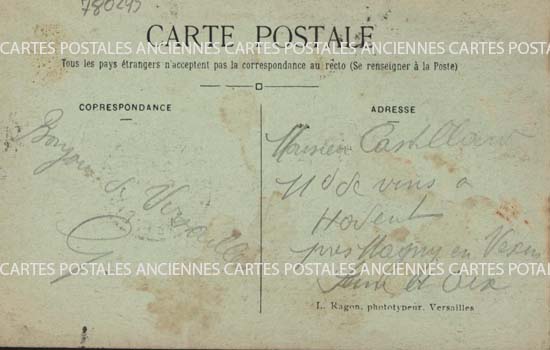 780245
CARTE POSTALE
CARTES POSTALES ANCIENNES CARTES POSTALES ANCIENNES CARTES POSTA
Tous les pays étrangers n'acceptent pas la correspondance au recto (Se renseigner à la Poste)
CORRESPONDANCE
Bonjour de Versailles
ADRESSE
Monsieur Castellant
Md de vins a
Hodent
près Magny en Vexin
Seine et Oise
CARTES POSTALES ANCIENNES CARTES POSTALES ANCIENNES CARTES POSTA
L. Ragon, phototypeur, Versailles